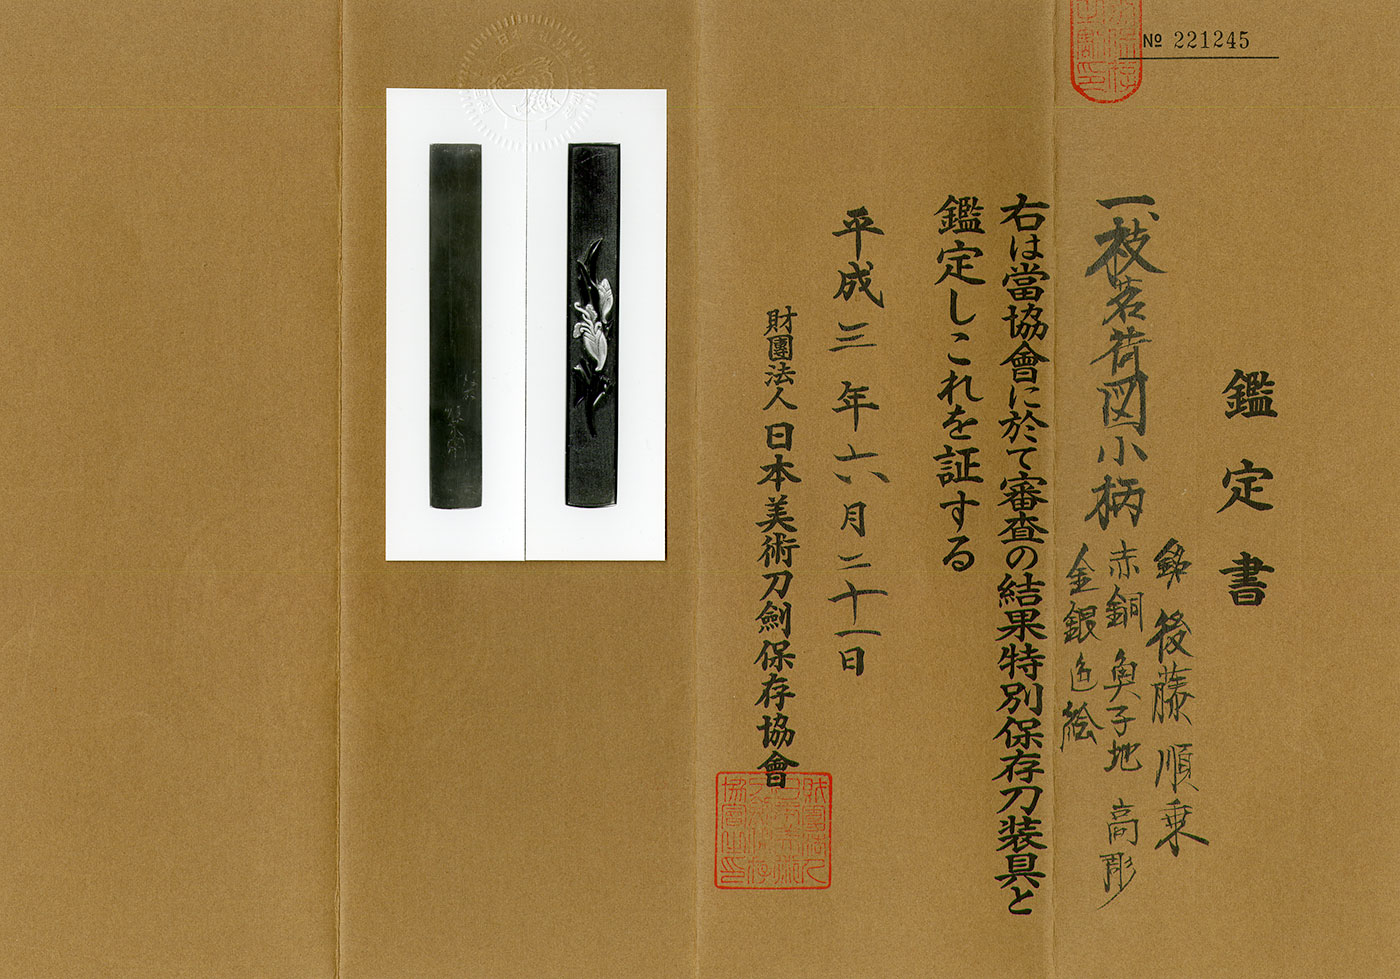 № 221245
鑑定書
一、枝茗荷図小柄
銘 後藤順乗
赤銅魚子地 高彫
金銀色絵
右は當協會に於て審査の結果特別保存刀装具と
鑑定しこれを証する
平成三年六月二十一日
財團法人日本美術刀劍保存協會